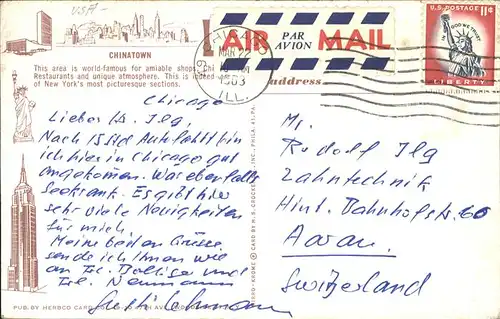 USA-
CHINATOWN
This area is world-famous for amiable shops,
Restaurants and unique atmosphere. This is indeed
of New York's most picturesque sections.
AIR PAR AVION MAIL
CHICAGO
MAR
1963
ILL.
address
U.S. POSTAGE 11¢
IN GOD WE TRUST
LIBERTY
Chicago
Lieber Hs. Ilg,
Nach 15 Std Autofahrt bin
ich hier in Chicago gut
angekommen. War ebenfalls
seekrank. Es gibt hier
sehr viele Neuigkeiten
für mich
Meine besten Grüsse
sende ich Ihnen wie
an Frl. Bolliger und
Frl. Neumann
Gusti Lehmann
Mr.
Rudolf Ilg
Zahntechnik
Hint. Bahnhofstr. 60
Aarau
Switzerland
CARD BY H.S. CROCKER CO., INC.
PUB. BY HERBCO CARD